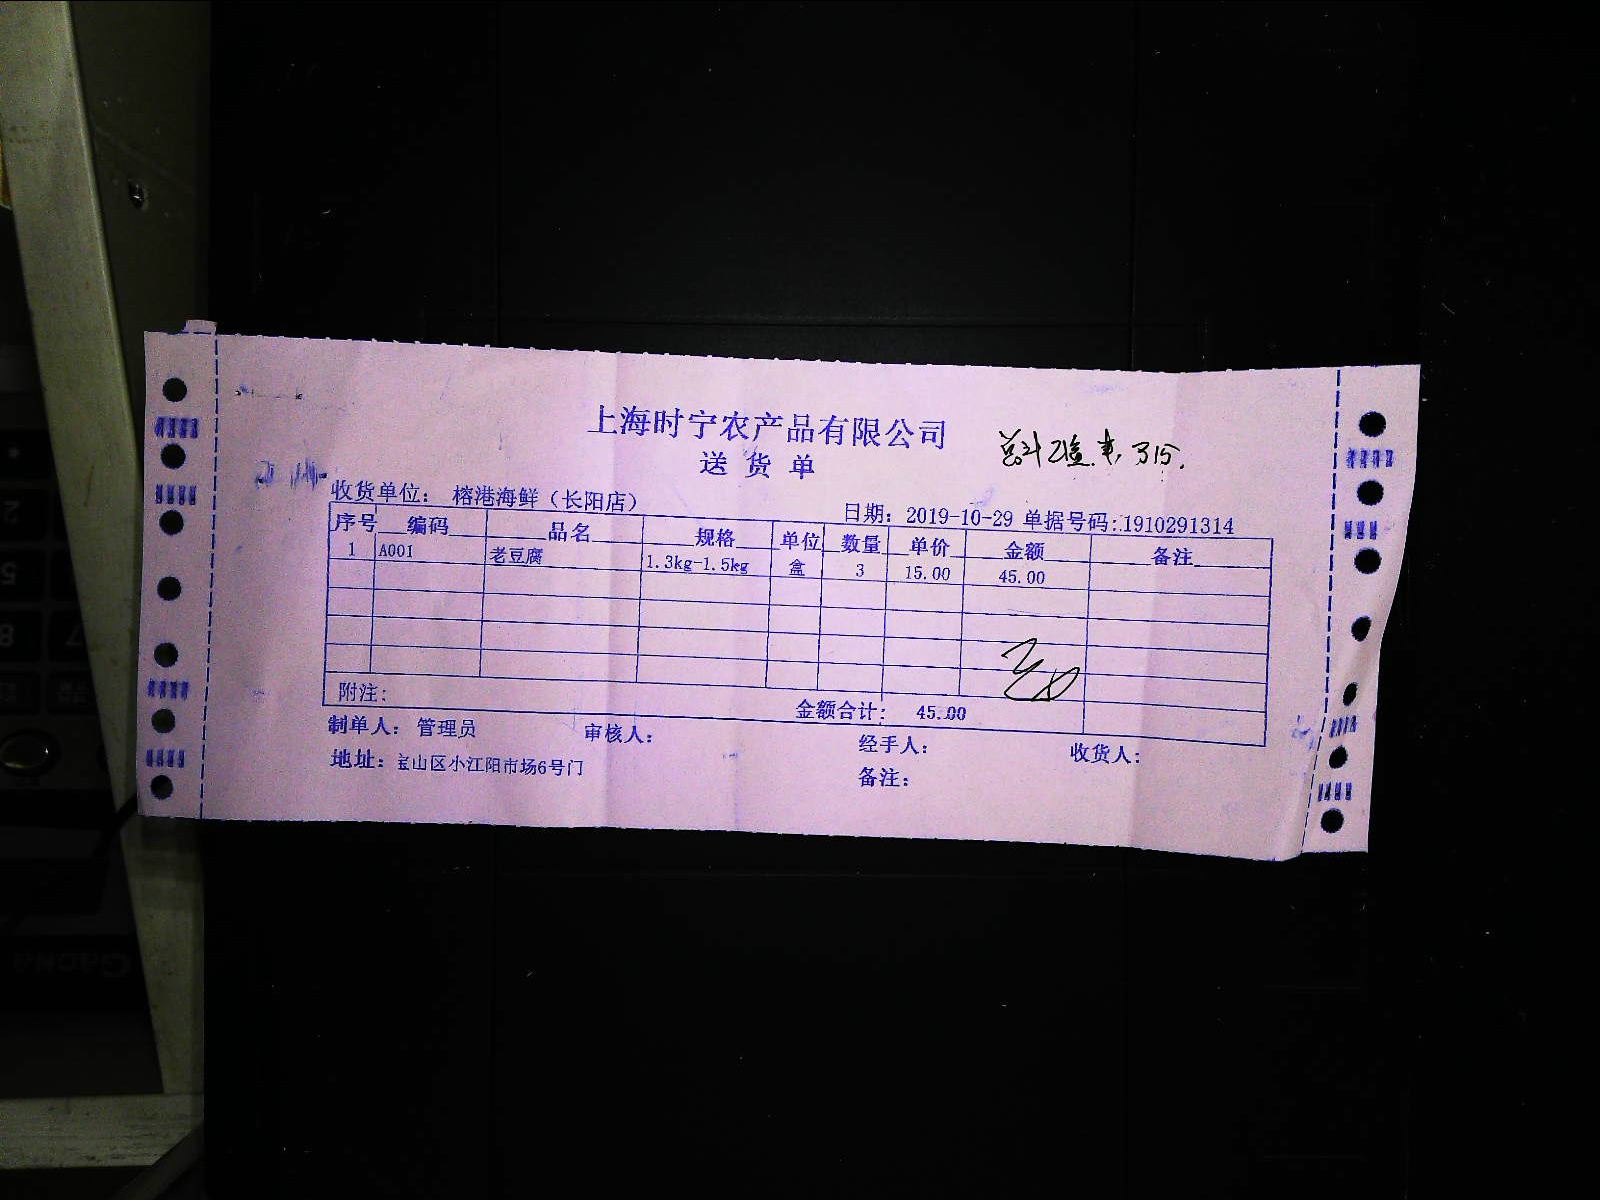 上海时宁农产品有限公司
送货单
315.
收货单位: 榕港海鲜(长阳店) 日期: 2019-10-29 单据号码:1910291314
序号 编码 品名 规格 单位 数量 单价 金额 备注
1 A001 老豆腐 1.3kg-1.5kg 盒 3 15.00 45.00
附注: 金额合计: 45.00
制单人: 管理员 审核人: 经手人: 收货人:
地址: 宝山区小江阳市场6号门 备注: